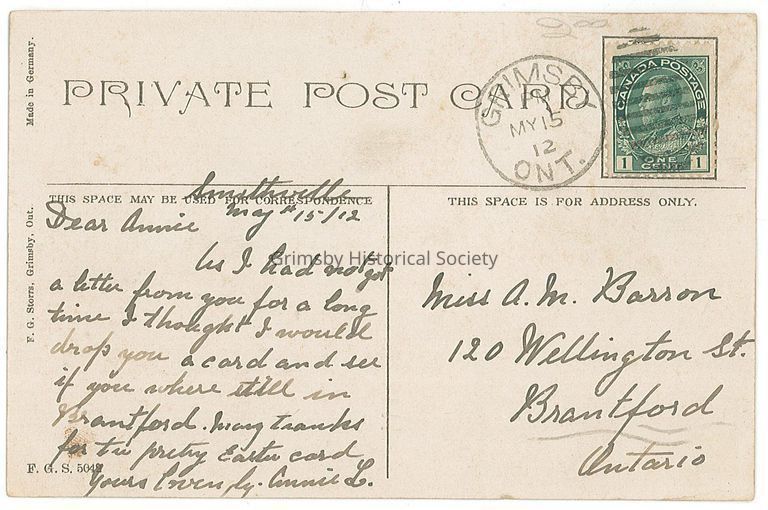 Made in Germany.
PRIVATE POST CARD
GRIMSBY
PM
MY 15
12
ONT.
CANADA POSTAGE
1 ONE CENT 1
THIS SPACE MAY BE USED FOR CORRESPONDENCE
THIS SPACE IS FOR ADDRESS ONLY.
Smithville
May 15/12
Dear Annie
As I had not got
a letter from you for a long
time I thought I would
drop you a card and see
if you where still in
Brantford. Many thanks
for the pretty Easter card
Yours Lovenly. Annie L.
F. G. Storrs, Grimsby, Ont.
F. G. S. 5042
Miss A. M. Barron
120 Wellington St.
Brantford
Ontario
Grimsby Historical Society